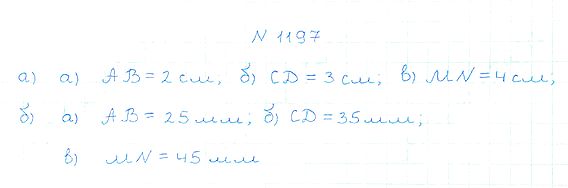 N 1197
а) а) AB = 2 см, б) CD = 3 см; в) MN = 4 см;
б) а) AB = 25 мм; б) CD = 35 мм;
в) MN = 45 мм